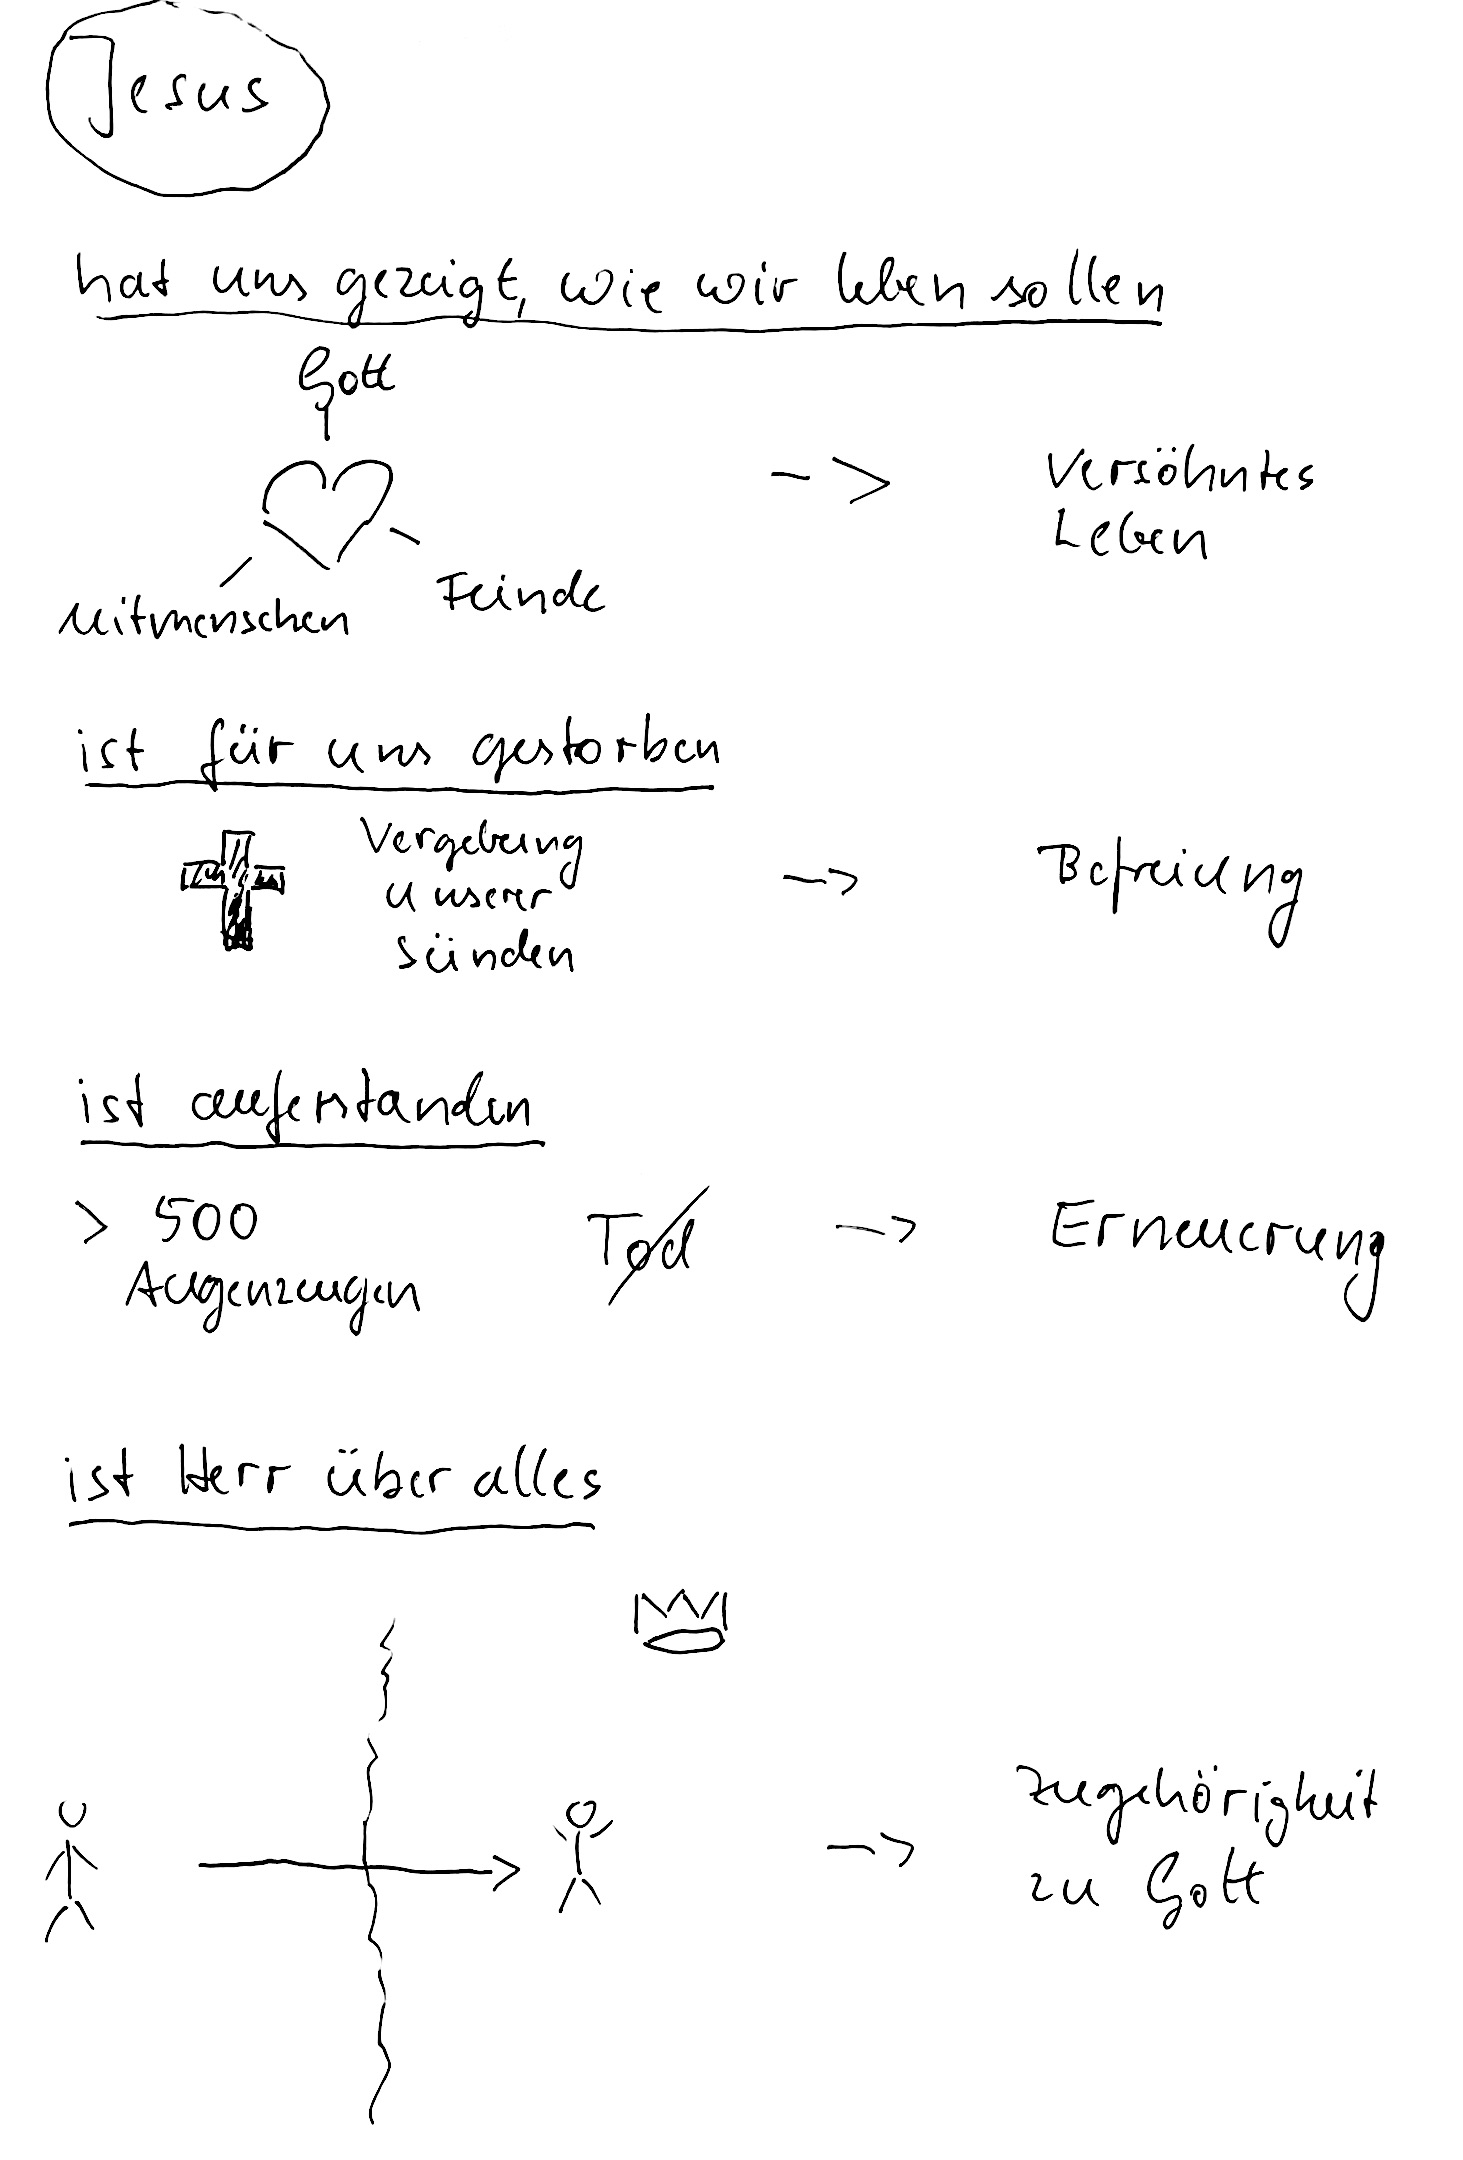 Jesus
hat uns gezeigt, wie wir leben sollen
Gott
Versöhntes
Leben
Mitmenschen
Feinde
ist für uns gestorben
Vergebung
unserer
Sünden
-> Befreiung
ist auferstanden
> 500
Augenzeugen
Tod
-> Erneuerung
ist Herr über alles
-> Zugehörigkeit
zu Gott